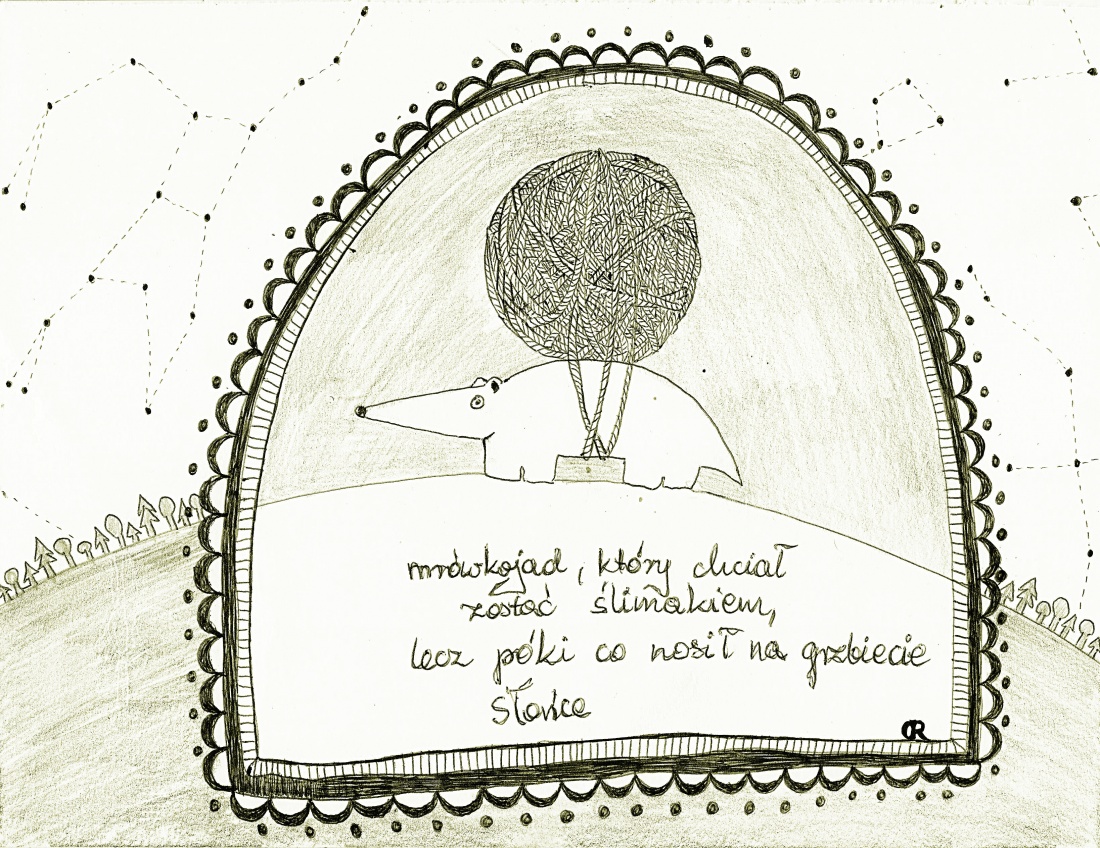 mrówkojad, który chciał
zostać ślimakiem,
lecz póki co nosił na grzbiecie
słońce